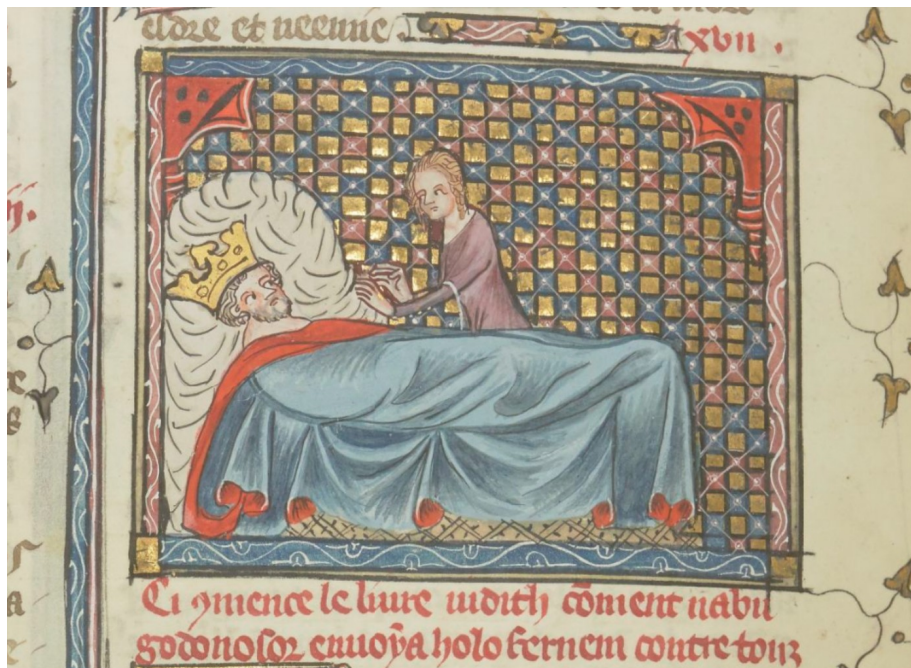 eldre et neenuc
xvii .
Ci 9mence le liure iudith cōment nabu
godonosor enuoya holofernem contre touz